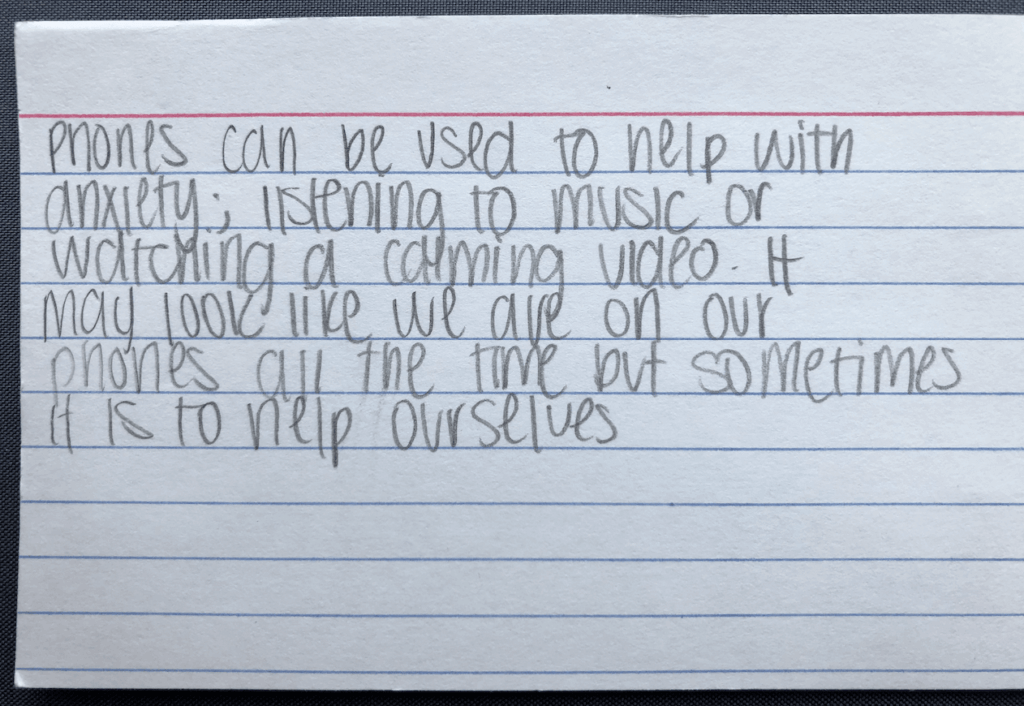 phones can be used to help with
anxiety; listening to music or
watching a calming video. It
may look like we are on our
phones all the time but sometimes
it is to help ourselves